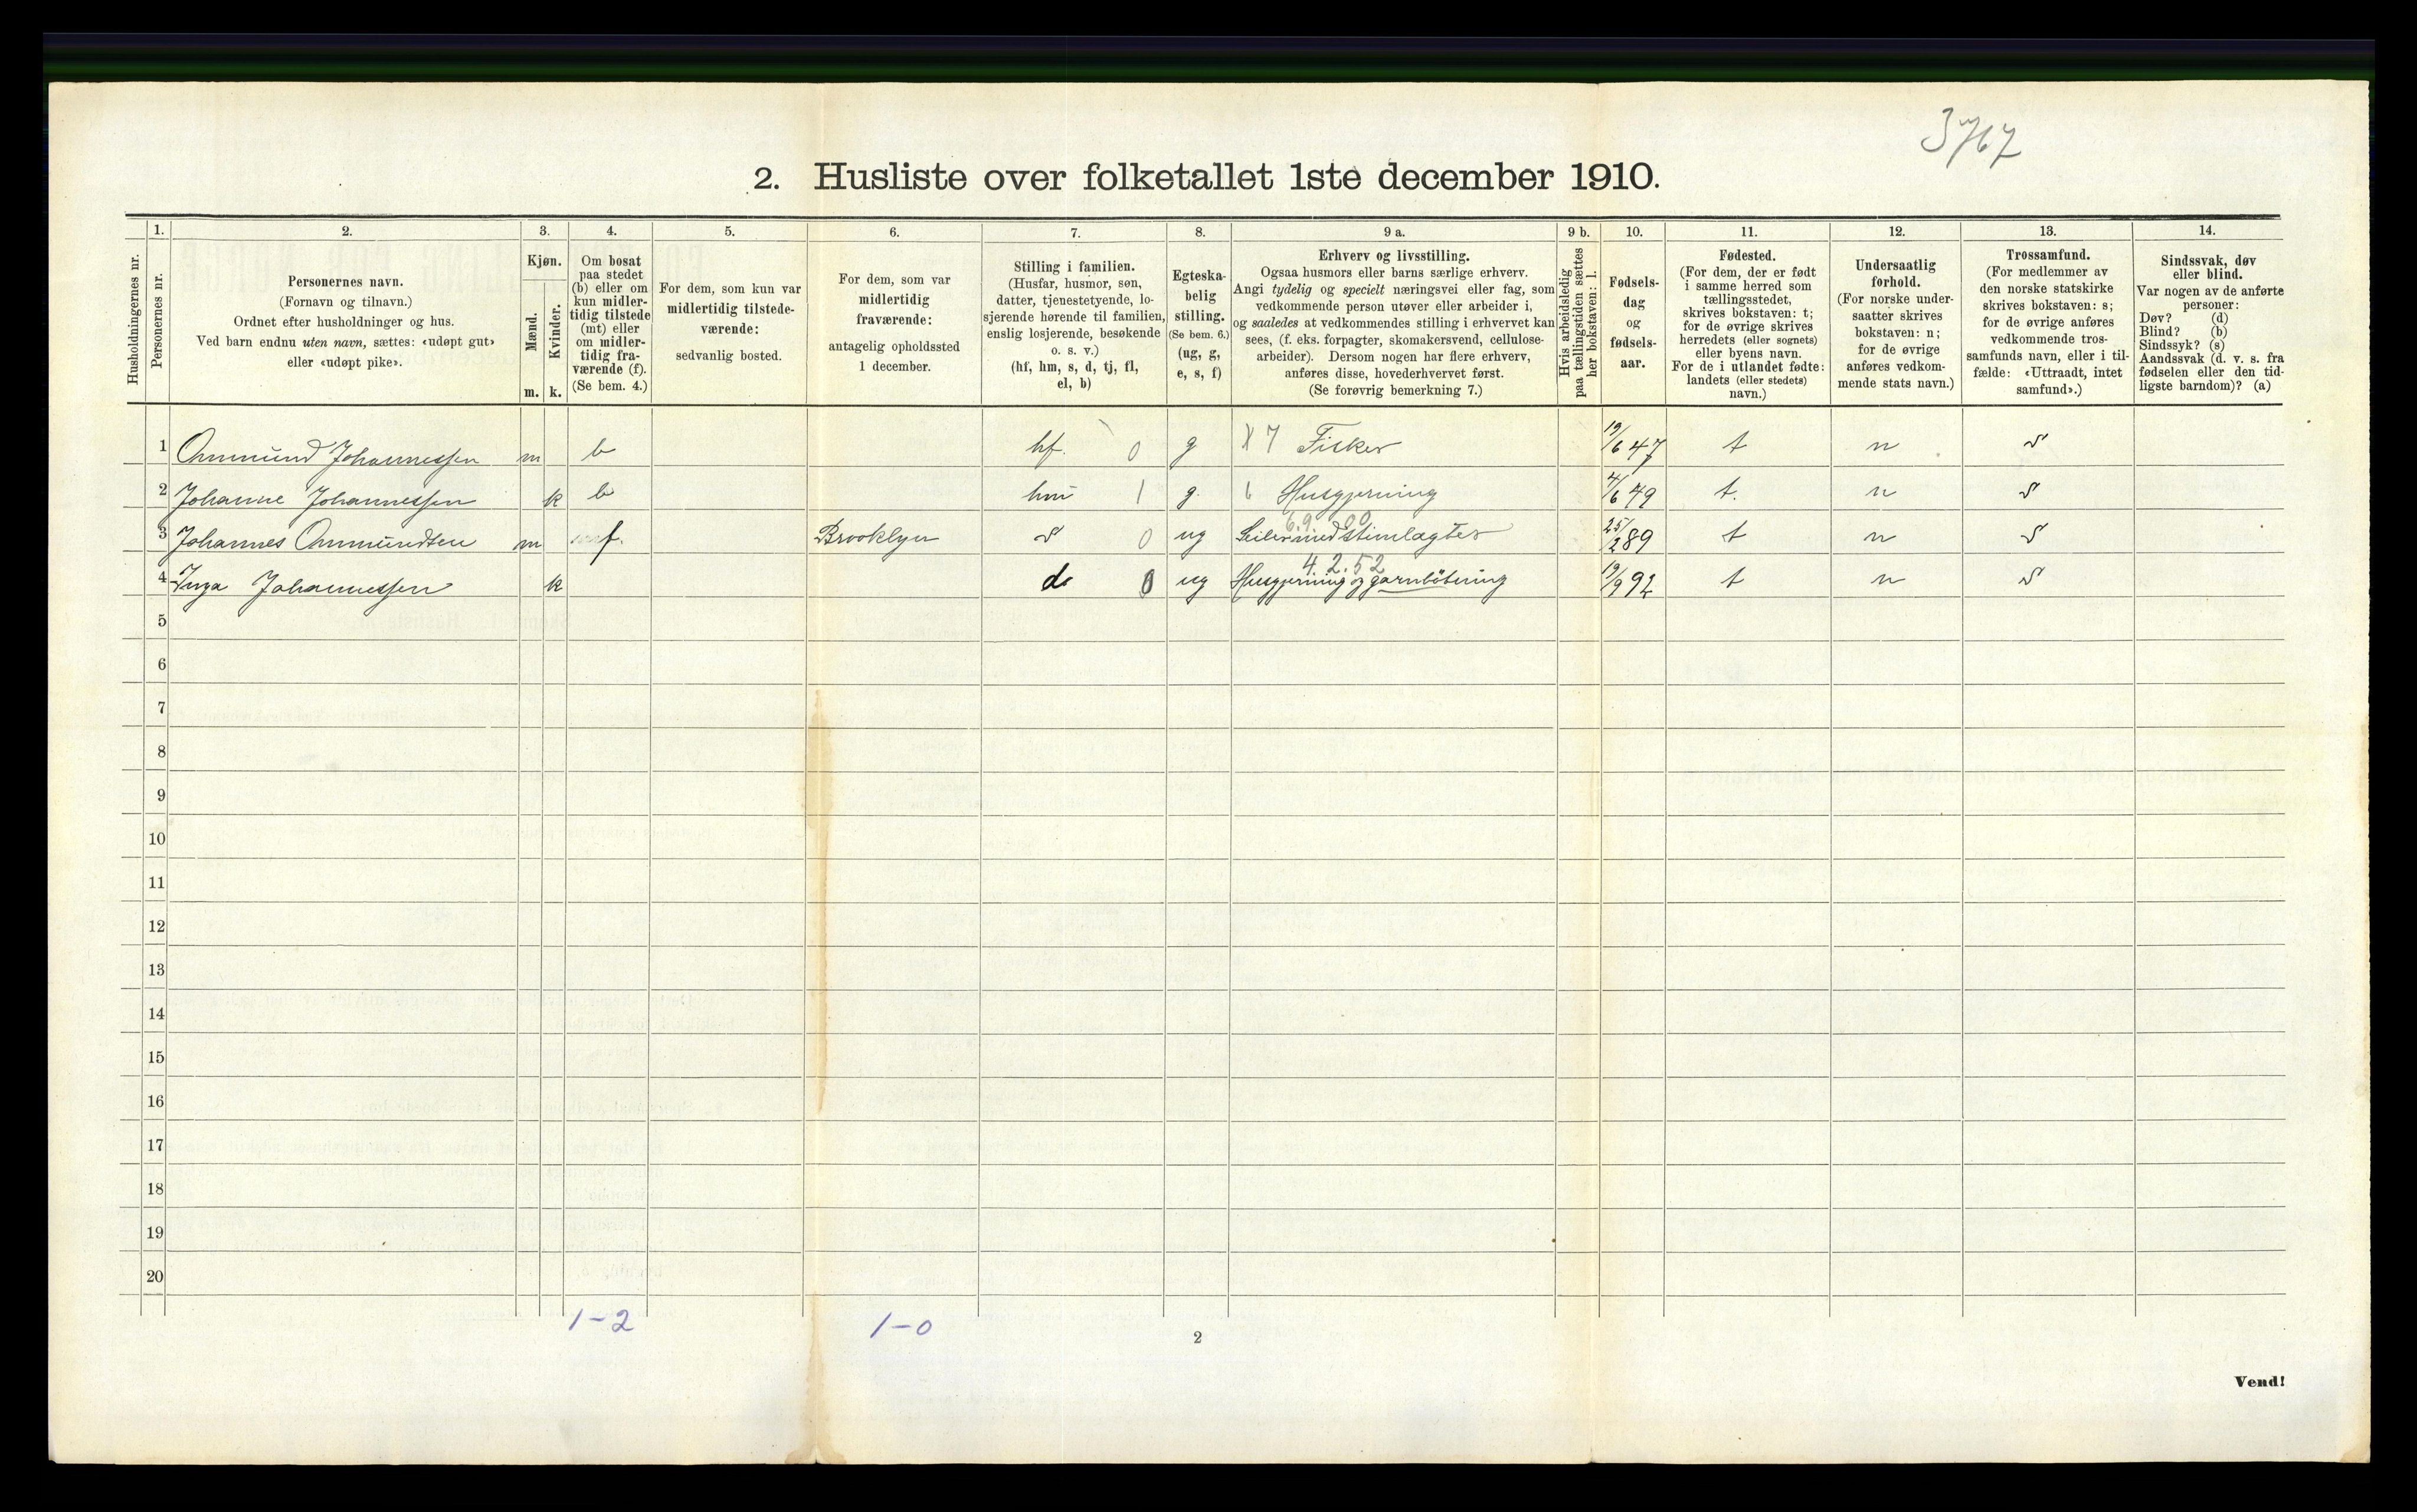 3767
2. Husliste over folketallet 1ste december 1910.
Husholdningernes nr.
1.
Personernes nr.
2.
Personernes navn.
(Fornavn og tilnavn.)
Ordnet efter husholdninger og hus.
Ved barn endnu uten navn, sættes: «udøpt gut»
eller «udøpt pike».
3.
Kjøn.
Mænd.
Kvinder.
m. k.
4.
Om bosat
paa stedet
(b) eller om
kun midler-
tidig tilstede
(mt) eller
om midler-
tidig fra-
værende (f).
(Se bem. 4.)
5.
For dem, som kun var
midlertidig tilstede-
værende:
sedvanlig bosted.
6.
For dem, som var
midlertidig
fraværende:
antagelig opholdssted
1 december.
7.
Stilling i familien.
(Husfar, husmor, søn,
datter, tjenestetyende, lo-
sjerende hørende til familien,
enslig losjerende, besøkende
o. s. v.)
(hf, hm, s, d, tj, fl,
el, b)
8.
Egteska-
belig
stilling.
(Se bem. 6.)
(ug, g,
e, s, f)
9 a.
Erhverv og livsstilling.
Ogsaa husmors eller barns særlige erhverv.
Angi tydelig og specielt næringsvei eller fag, som
vedkommende person utøver eller arbeider i,
og saaledes at vedkommendes stilling i erhvervet kan
sees, (f. eks. forpagter, skomakersvend, cellulose-
arbeider). Dersom nogen har flere erhverv,
anføres disse, hovederhvervet først.
(Se forøvrig bemerkning 7.)
9 b.
Hvis arbeidsledig
paa tællingstiden sættes
her bokstaven: l.
10.
Fødsels-
dag
og
fødsels-
aar.
11.
Fødested.
(For dem, der er født
i samme herred som
tællingsstedet,
skrives bokstaven: t;
for de øvrige skrives
herredets (eller sognets)
eller byens navn.
For de i utlandet fødte:
landets (eller stedets)
navn.)
12.
Undersaatlig
forhold.
(For norske under-
saatter skrives
bokstaven: n;
for de øvrige
anføres vedkom-
mende stats navn.)
13.
Trossamfund.
(For medlemmer av
den norske statskirke
skrives bokstaven: s;
for de øvrige anføres
vedkommende tros-
samfunds navn, eller i til-
fælde: «Uttraadt, intet
samfund».)
14.
Sindssvak, døv
eller blind.
Var nogen av de anførte
personer:
Døv? (d)
Blind? (b)
Sindssyk? (s)
Aandssvak (d. v. s. fra
fødselen eller den tid-
ligste barndom)? (a)
1 Ommund Johannessen m b hf. 0 g 7 Fisker 19/6 47 t n s
2 Johanne Johannessen k b hm 1 g. Husgjerning 4/6 49 t. n s
6.9.00
3 Johannes Ommundsen m f. Brooklyn s 0 ug 25/2 89 t n s
4.2.52
4 Inga Johannessen k d 0 ug Husgjerning og garnbötning 19/9 92 t n s
5
6
7
8
9
10
11
12
13
14
15
16
17
18
19
20
1-2 1-0
2
Vend!